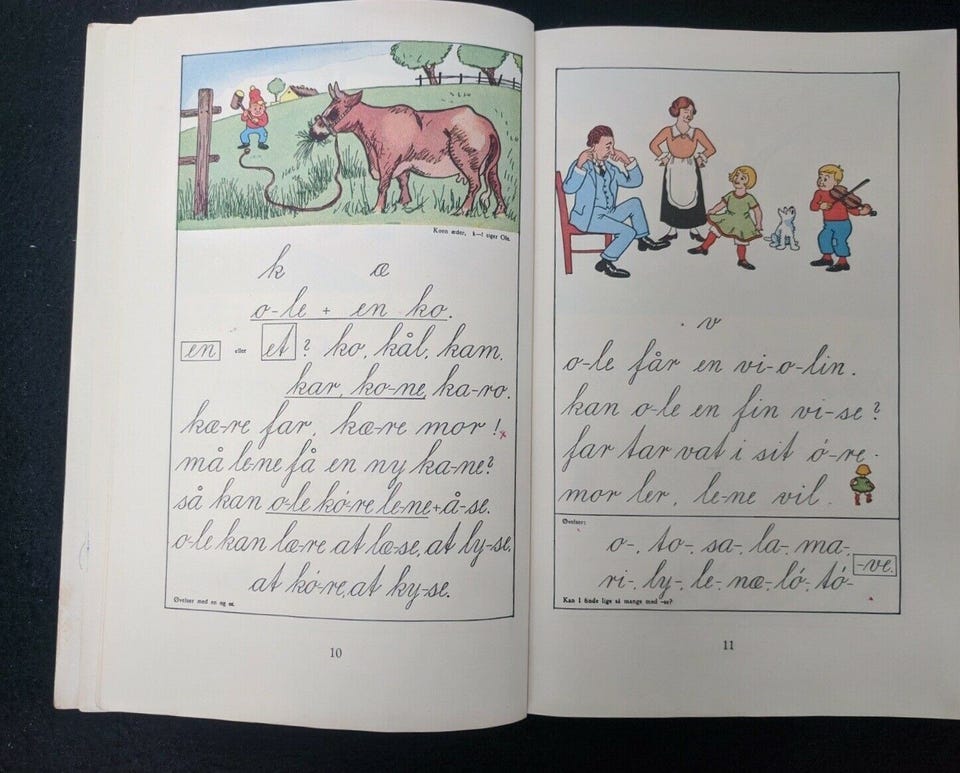 Koen æder, k—! siger Ole.
k æ
o-le + en ko.
en eller et ? ko, kål, kam.
kar, ko-ne, ka-ro.
kæ-re far, kæ-re mor !
må le-ne få en ny ka-ne?
så kan o-le kó-re le-ne + å-se.
o-le kan læ-re at læ-se, at ly-se,
at kó-re, at ky-se.
Øvelser med en og et.
10
v
o-le får en vi-o-lin.
kan o-le en fin vi-se ?
far tar vat i sit ó-re.
mor ler, le-ne vil
Øvelser:
o-, to-, sa-, la-, ma-,
ri-, ly-, le-, næ-, ló-, tó- -ve.
Kan I finde lige så mange med -se?
11